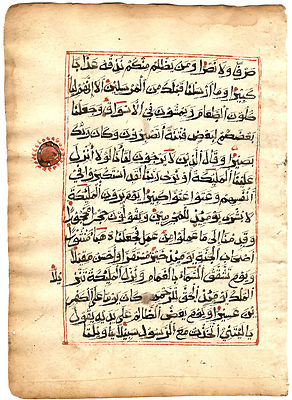 صرفا ولا نصرا ومن يظلم منكم نذقه عذابا
كبيرا وما ارسلنا قبلك من المرسلين الا انهم ليا
كلون الطعام ويمشون في الاسواق وجعلنا
بعضكم لبعض فتنة اتصبرون وكان ربك
بصيرا وقال الذين لا يرجون لقاءنا لولا انزل
علينا الملئكة او نرى ربنا لقد استكبروا في
انفسهم وعتوا عتوا كبيرا يوم يرون الملئكة
لا بشرى يومئذ للمجرمين ويقولون حجرا محجورا
وقدمنا الى ما عملوا من عمل فجعلناه هباء منثورا
اصحاب الجنة يومئذ خير مستقرا واحسن مقيلا
ويوم تشقق السماء بالغمام ونزل الملئكة تنزيلا
الملك يومئذ الحق للرحمن وكان يوما على الكفر
ين عسيرا ويوم يعض الظالم على يديه يقول
يا ليتني اتخذت مع الرسول سبيلا يا ويلتا